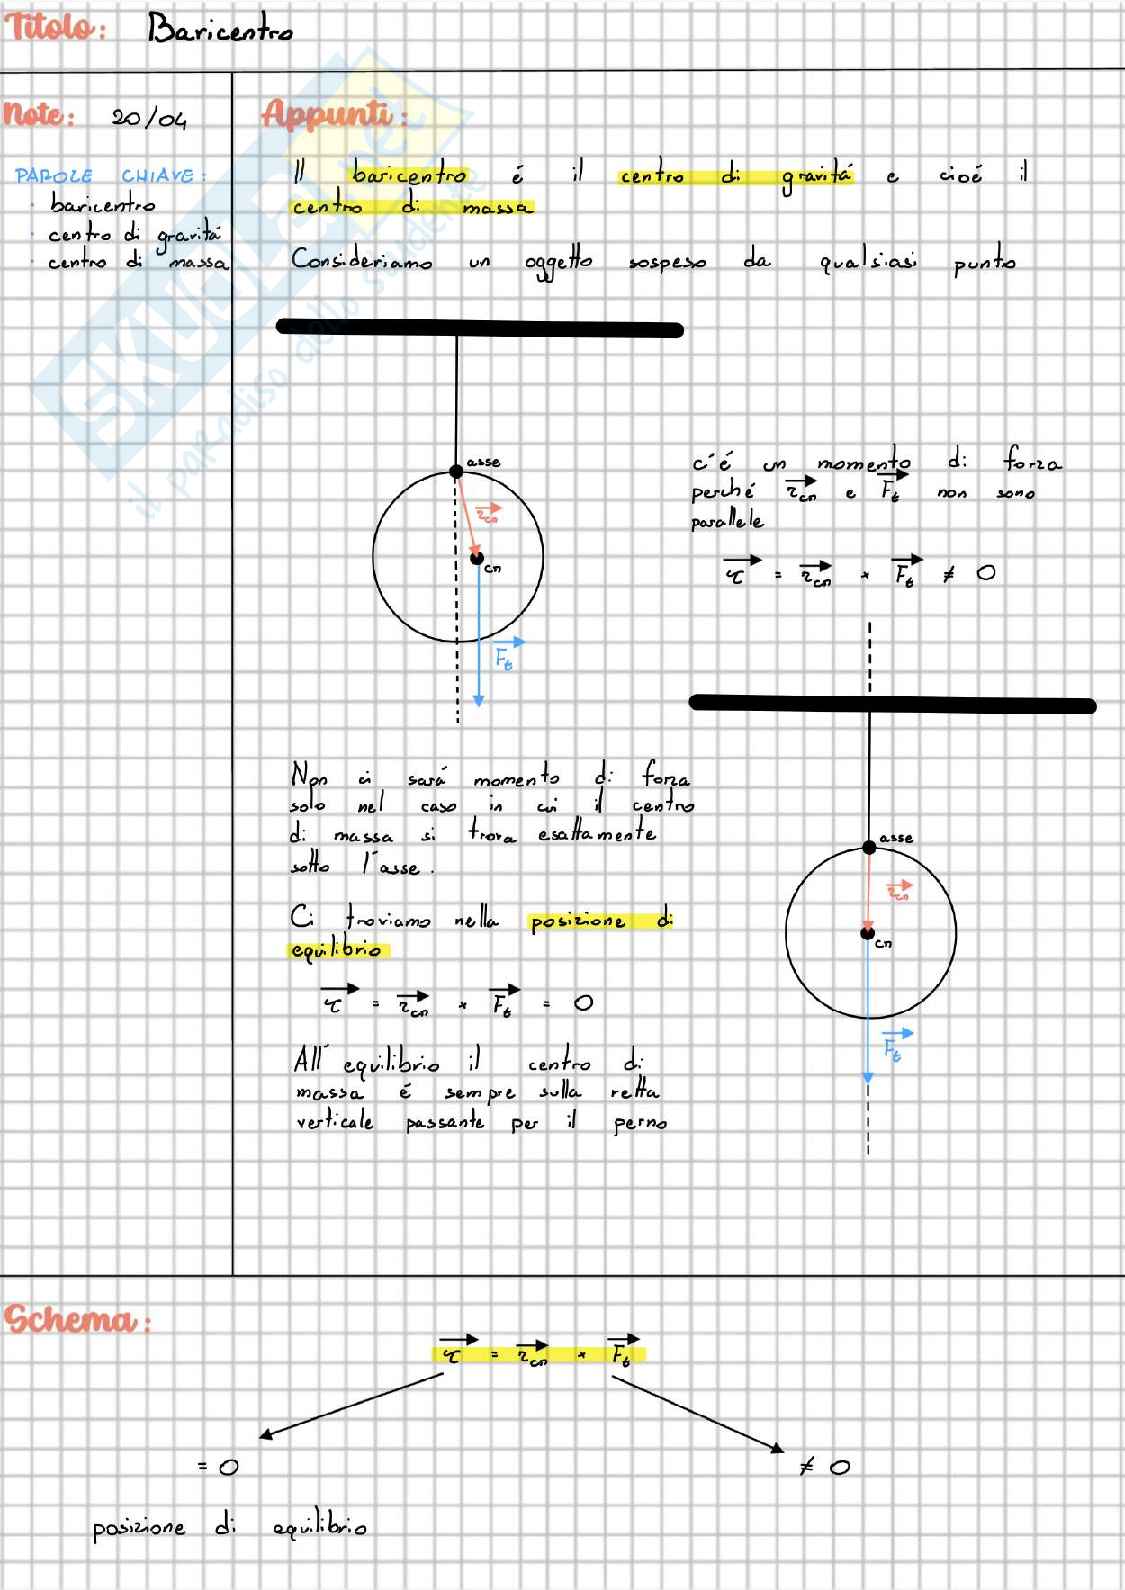 Titolo: Baricentro
Note: 20/04
PAROLE CHIAVE:
· baricentro
· centro di gravitá
· centro di massa
Appunti:
Il baricentro é il centro di gravitá e cioé il
centro di massa
Consideriamo un oggetto sospeso da qualsiasi punto
asse
r⃗cm
cm
F⃗g
c'é un momento di forza
perché r⃗cm e F⃗g non sono
parallele
τ⃗ = r⃗cm × F⃗g ≠ 0
Non ci sará momento di forza
solo nel caso in cui il centro
di massa si trova esattamente
sotto l'asse.
Ci troviamo nella posizione di
equilibrio
τ⃗ = r⃗cm × F⃗g = 0
All'equilibrio il centro di
massa é sempre sulla retta
verticale passante per il perno
asse
r⃗cm
cm
F⃗g
Schema:
τ⃗ = r⃗cm × F⃗g
= 0
≠ 0
posizione di equilibrio
SKUOLA.net
il paradiso dello studente